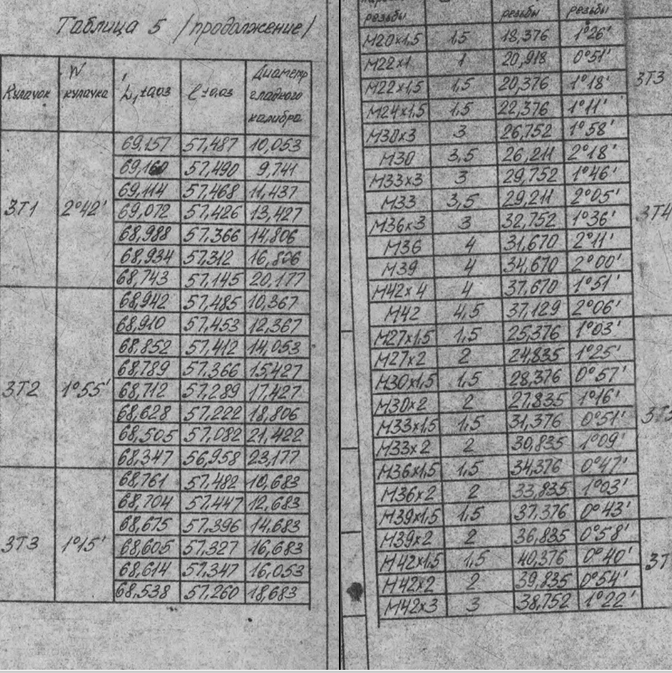 Таблица 5 /продолжение/
Кулачок W кулачка L, ±0,03 ℓ ±0,03 Диаметр гладкого калибра
3Т1 2°42'
69,157 57,487 10,053
69,160 57,490 9,741
69,114 57,468 11,437
69,072 57,426 13,427
68,988 57,366 14,806
68,934 57,312 16,806
68,743 57,145 20,177
3Т2 1°55'
68,942 57,485 10,367
68,910 57,453 12,367
68,852 57,412 14,053
68,789 57,366 15,427
68,712 57,289 17,427
68,628 57,222 18,806
68,505 57,082 21,422
68,347 56,958 23,177
3Т3 1°15'
68,761 57,482 10,683
68,704 57,447 12,683
68,675 57,396 14,683
68,605 57,327 16,683
68,614 57,347 16,053
68,538 57,260 18,683
резьбы резьбы резьбы
М20х1,5 1,5 18,376 1°26'
М22х1 1 20,918 0°51'
М22х1,5 1,5 20,376 1°18'
3Т3
М24х1,5 1,5 22,376 1°11'
М30х3 3 26,752 1°58'
М30 3,5 26,211 2°18'
М33х3 3 29,752 1°46'
М33 3,5 29,211 2°05'
3Т4
М36х3 3 32,752 1°36'
М36 4 31,670 2°11'
М39 4 34,670 2°00'
М42х4 4 37,670 1°51'
М42 4,5 37,129 2°06'
М27х1,5 1,5 25,376 1°03'
М27х2 2 24,835 1°25'
М30х1,5 1,5 28,376 0°57'
М30х2 2 27,835 1°16'
М33х1,5 1,5 31,376 0°51'
М33х2 2 30,835 1°09'
М36х1,5 1,5 34,376 0°47'
М36х2 2 33,835 1°03'
М39х1,5 1,5 37,376 0°43'
М39х2 2 36,835 0°58'
М42х1,5 1,5 40,376 0°40'
3Т
М42х2 2 39,835 0°54'
М42х3 3 38,752 1°22'